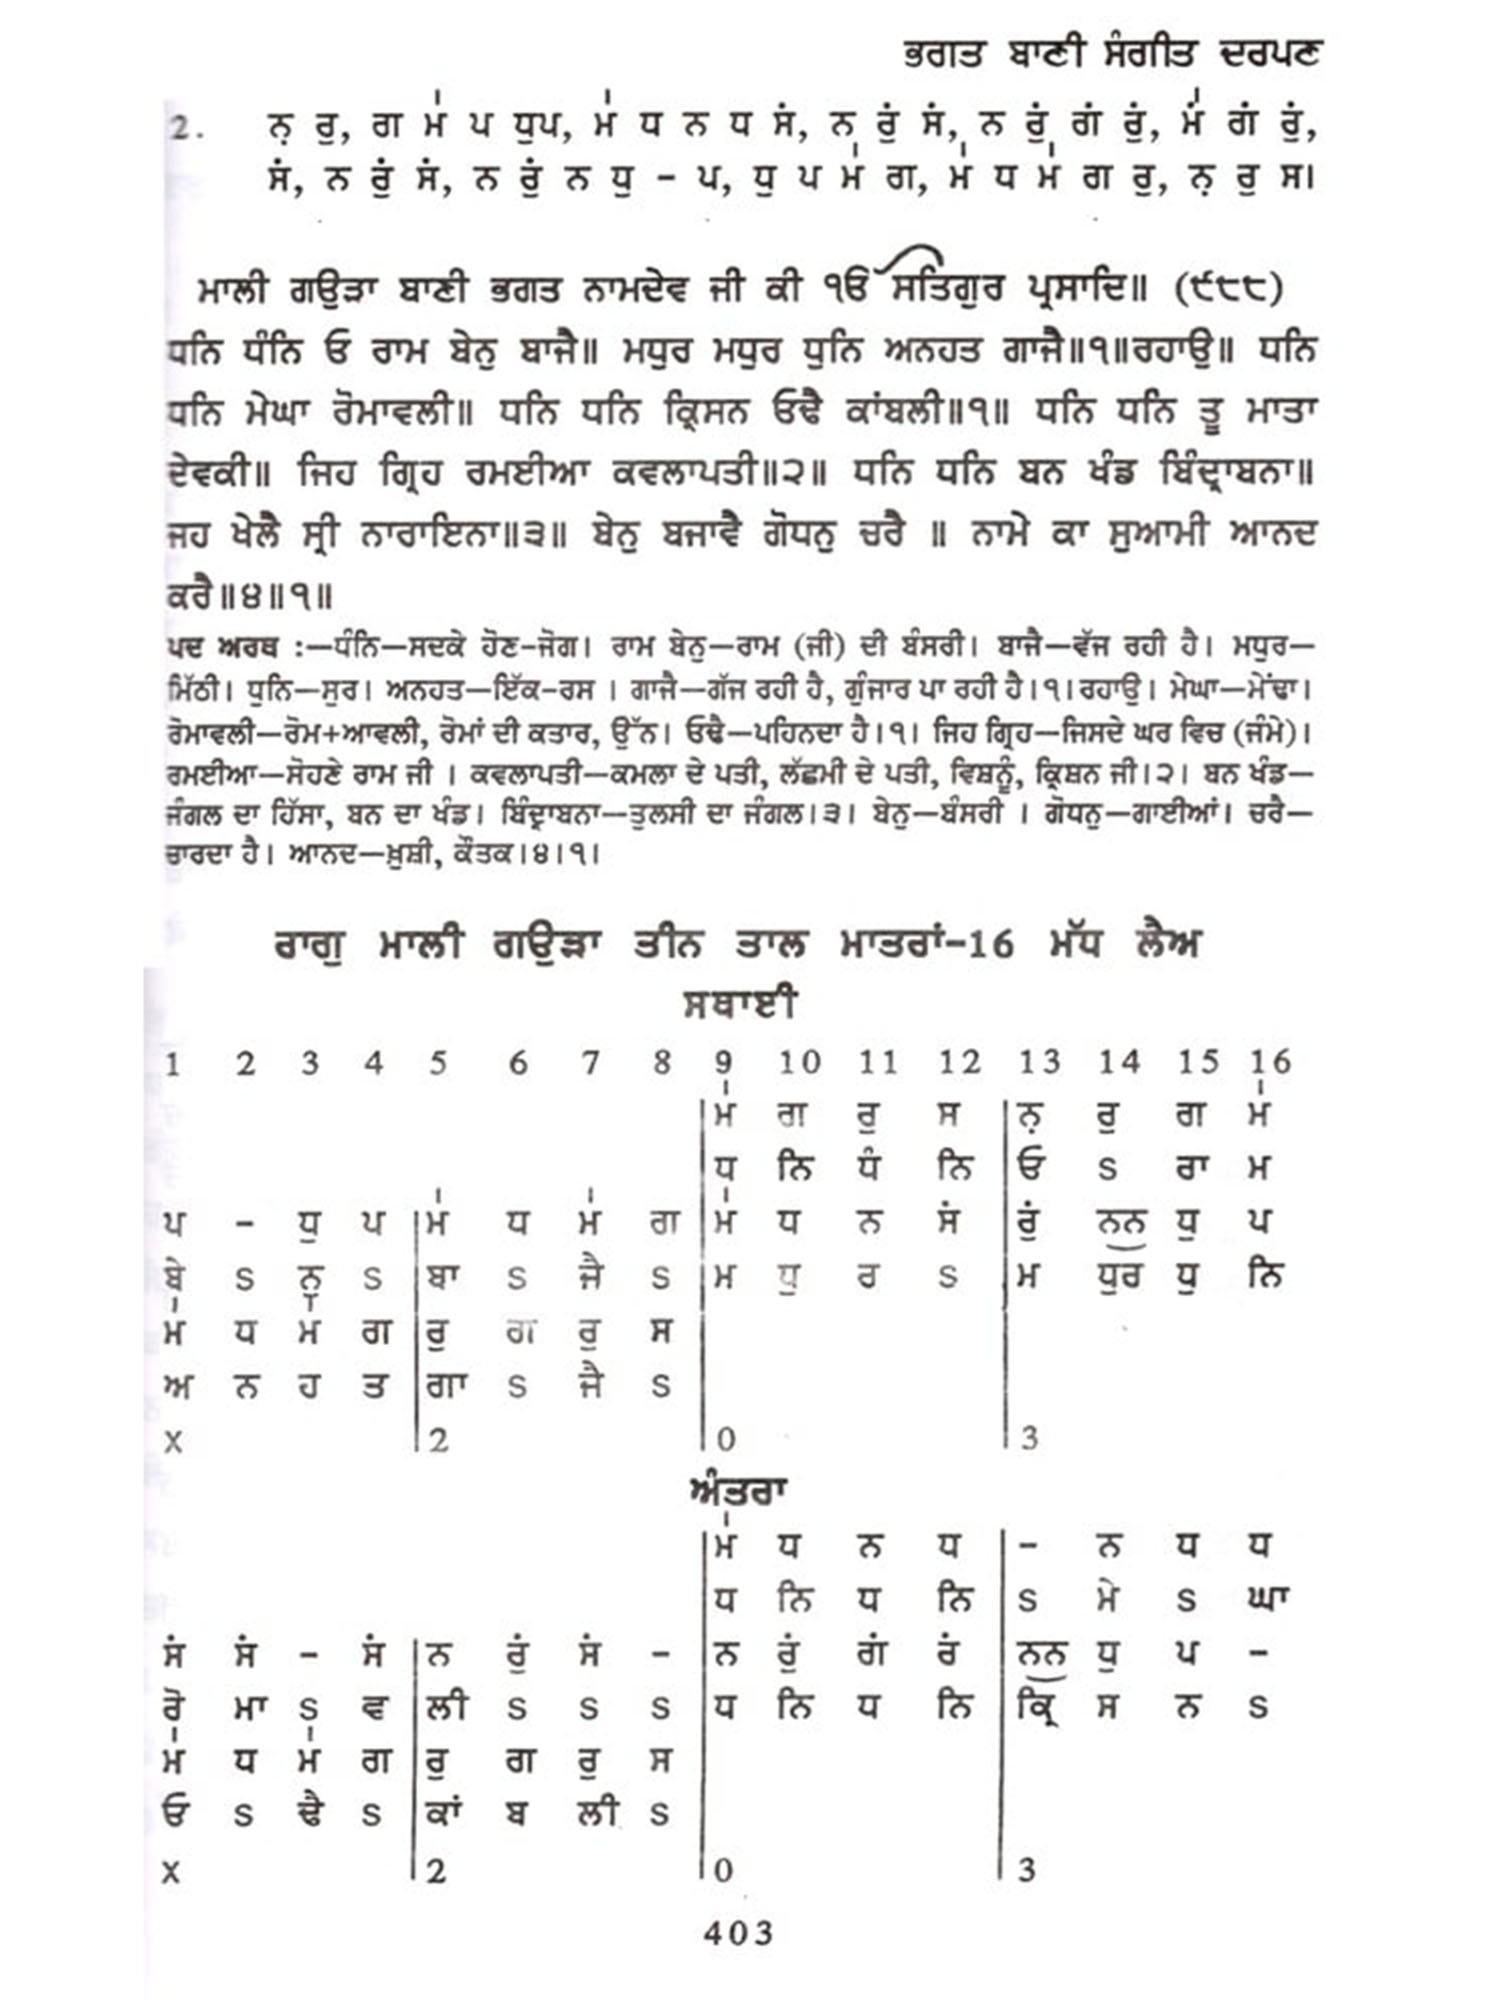 ਭਗਤ ਬਾਣੀ ਸੰਗੀਤ ਦਰਪਣ
2. ਨ਼ ਰੁ, ਗ ਮ॑ ਪ ਧੁਪ, ਮ॑ ਧ ਨ ਧ ਸੰ, ਨ ਰੁੰ ਸੰ, ਨ ਰੁੰ ਗੰ ਰੁੰ, ਮੰ॑ ਗੰ ਰੁੰ,
ਸੰ, ਨ ਰੁੰ ਸੰ, ਨ ਰੁੰ ਨ ਧੁ - ਪ, ਧੁ ਪ ਮ॑ ਗ, ਮ॑ ਧ ਮ॑ ਗ ਰੁ, ਨ਼ ਰੁ ਸ।
ਮਾਲੀ ਗਉੜਾ ਬਾਣੀ ਭਗਤ ਨਾਮਦੇਵ ਜੀ ਕੀ ੴ ਸਤਿਗੁਰ ਪ੍ਰਸਾਦਿ॥ (੯੮੮)
ਧਨਿ ਧੰਨਿ ਓ ਰਾਮ ਬੇਨੁ ਬਾਜੈ॥ ਮਧੁਰ ਮਧੁਰ ਧੁਨਿ ਅਨਹਤ ਗਾਜੈ॥੧॥ਰਹਾਉ॥ ਧਨਿ
ਧਨਿ ਮੇਘਾ ਰੋਮਾਵਲੀ॥ ਧਨਿ ਧਨਿ ਕ੍ਰਿਸਨ ਓਢੈ ਕਾਂਬਲੀ॥੧॥ ਧਨਿ ਧਨਿ ਤੂ ਮਾਤਾ
ਦੇਵਕੀ॥ ਜਿਹ ਗ੍ਰਿਹ ਰਮਈਆ ਕਵਲਾਪਤੀ॥੨॥ ਧਨਿ ਧਨਿ ਬਨ ਖੰਡ ਬਿੰਦ੍ਰਾਬਨਾ॥
ਜਹ ਖੇਲੈ ਸ੍ਰੀ ਨਾਰਾਇਨਾ॥੩॥ ਬੇਨੁ ਬਜਾਵੈ ਗੋਧਨੁ ਚਰੈ ॥ ਨਾਮੇ ਕਾ ਸੁਆਮੀ ਆਨਦ
ਕਰੈ॥੪॥੧॥
ਪਦ ਅਰਥ :—ਧੰਨਿ—ਸਦਕੇ ਹੋਣ-ਜੋਗ। ਰਾਮ ਬੇਨੁ—ਰਾਮ (ਜੀ) ਦੀ ਬੰਸਰੀ। ਬਾਜੈ—ਵੱਜ ਰਹੀ ਹੈ। ਮਧੁਰ—
ਮਿੱਠੀ। ਧੁਨਿ—ਸੁਰ। ਅਨਹਤ—ਇੱਕ-ਰਸ । ਗਾਜੈ—ਗੱਜ ਰਹੀ ਹੈ, ਗੁੰਜਾਰ ਪਾ ਰਹੀ ਹੈ।੧।ਰਹਾਉ। ਮੇਘਾ—ਮੇਂਢਾ।
ਰੋਮਾਵਲੀ—ਰੋਮ+ਆਵਲੀ, ਰੋਮਾਂ ਦੀ ਕਤਾਰ, ਉੱਨ। ਓਢੈ—ਪਹਿਨਦਾ ਹੈ।੧। ਜਿਹ ਗ੍ਰਿਹ—ਜਿਸਦੇ ਘਰ ਵਿਚ (ਜੰਮੇ)।
ਰਮਈਆ—ਸੋਹਣੇ ਰਾਮ ਜੀ । ਕਵਲਾਪਤੀ—ਕਮਲਾ ਦੇ ਪਤੀ, ਲੱਛਮੀ ਦੇ ਪਤੀ, ਵਿਸ਼ਨੂੰ, ਕ੍ਰਿਸ਼ਨ ਜੀ।੨। ਬਨ ਖੰਡ—
ਜੰਗਲ ਦਾ ਹਿੱਸਾ, ਬਨ ਦਾ ਖੰਡ। ਬਿੰਦ੍ਰਾਬਨਾ—ਤੁਲਸੀ ਦਾ ਜੰਗਲ।੩। ਬੇਨੁ—ਬੰਸਰੀ । ਗੋਧਨੁ—ਗਾਈਆਂ। ਚਰੈ—
ਚਾਰਦਾ ਹੈ। ਆਨਦ—ਖ਼ੁਸ਼ੀ, ਕੌਤਕ।੪।੧।
ਰਾਗੁ ਮਾਲੀ ਗਉੜਾ ਤੀਨ ਤਾਲ ਮਾਤਰਾਂ-16 ਮੱਧ ਲੈਅ
ਸਥਾਈ
1 2 3 4 5 6 7 8 9 10 11 12 13 14 15 16
ਮ॑ ਗ ਰੁ ਸ ਨ਼ ਰੁ ਗ ਮ॑
ਧ ਨਿ ਧੰ ਨਿ ਓ S ਰਾ ਮ
ਪ - ਧੁ ਪ ਮ॑ ਧ ਮ॑ ਗ ਮ॑ ਧ ਨ ਸੰ ਰੁੰ ਨਨ ਧੁ ਪ
ਬੇ S ਨੁ S ਬਾ S ਜੈ S ਮ ਧੁ ਰ S ਮ ਧੁਰ ਧੁ ਨਿ
ਮ॑ ਧ ਮ॑ ਗ ਰੁ ਗ ਰੁ ਸ
ਅ ਨ ਹ ਤ ਗਾ S ਜੈ S
X 2 0 3
ਅੰਤਰਾ
ਮ॑ ਧ ਨ ਧ - ਨ ਧ ਧ
ਧ ਨਿ ਧ ਨਿ S ਮੇ S ਘਾ
ਸੰ ਸੰ - ਸੰ ਨ ਰੁੰ ਸੰ - ਨ ਰੁੰ ਗੰ ਰੰ ਨਨ ਧੁ ਪ -
ਰੋ ਮਾ S ਵ ਲੀ S S S ਧ ਨਿ ਧ ਨਿ ਕ੍ਰਿ ਸ ਨ S
ਮ॑ ਧ ਮ॑ ਗ ਰੁ ਗ ਰੁ ਸ
ਓ S ਢੈ S ਕਾਂ ਬ ਲੀ S
X 2 0 3
403